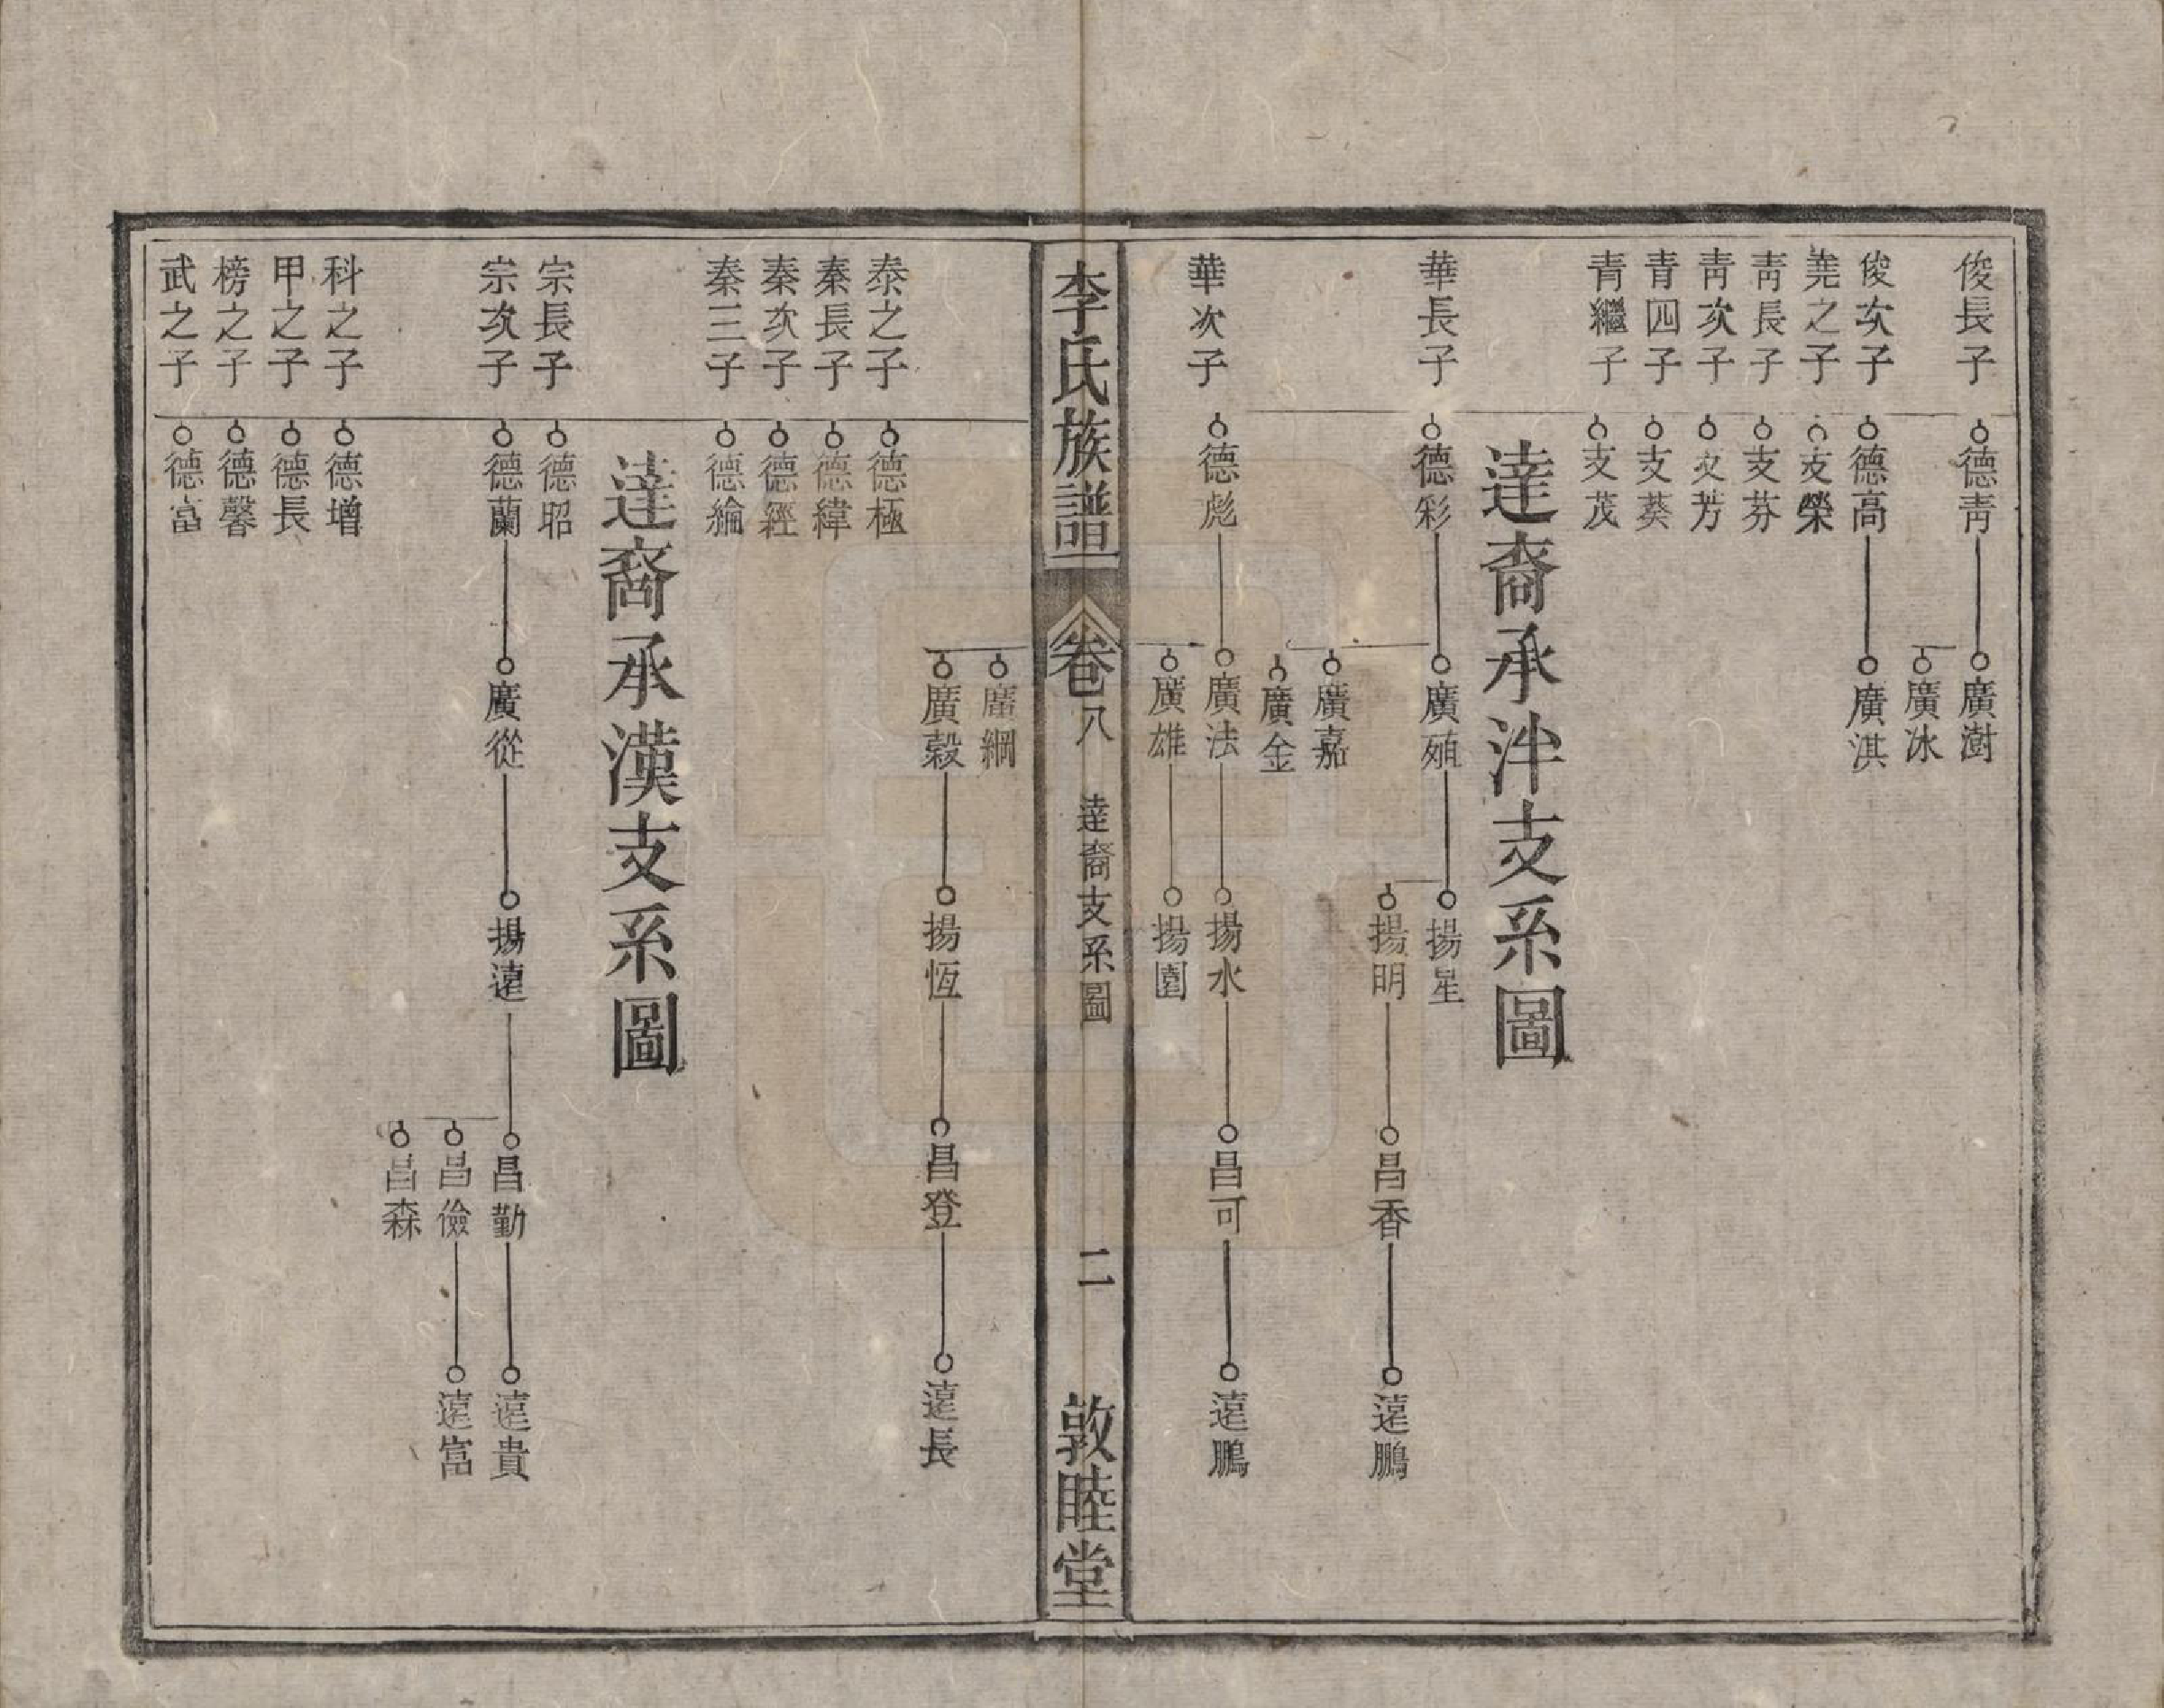 俊長子 德青 廣澍
廣冰
俊次子 德高 廣淇
堯之子 支榮
青長子 支芬
青次子 支芳
青四子 支葵
青繼子 支茂
達裔承泮支系圖
華長子 德彩 廣殖 揚星
揚明 昌香 遠鵬
廣嘉
廣金
華次子 德彪 廣法 揚水 昌可 遠鵬
廣雄 揚園
李氏族譜 卷八 達裔支系圖 二 敦睦堂
廣綱
廣穀 揚恆 昌登 遠長
泰之子 德極
秦長子 德緯
秦次子 德經
秦三子 德綸
達裔承漢支系圖
宗長子 德昭
宗次子 德蘭 廣從 揚遠 昌勤 遠貴
昌儉 遠富
昌森
科之子 德增
甲之子 德長
榜之子 德馨
武之子 德富